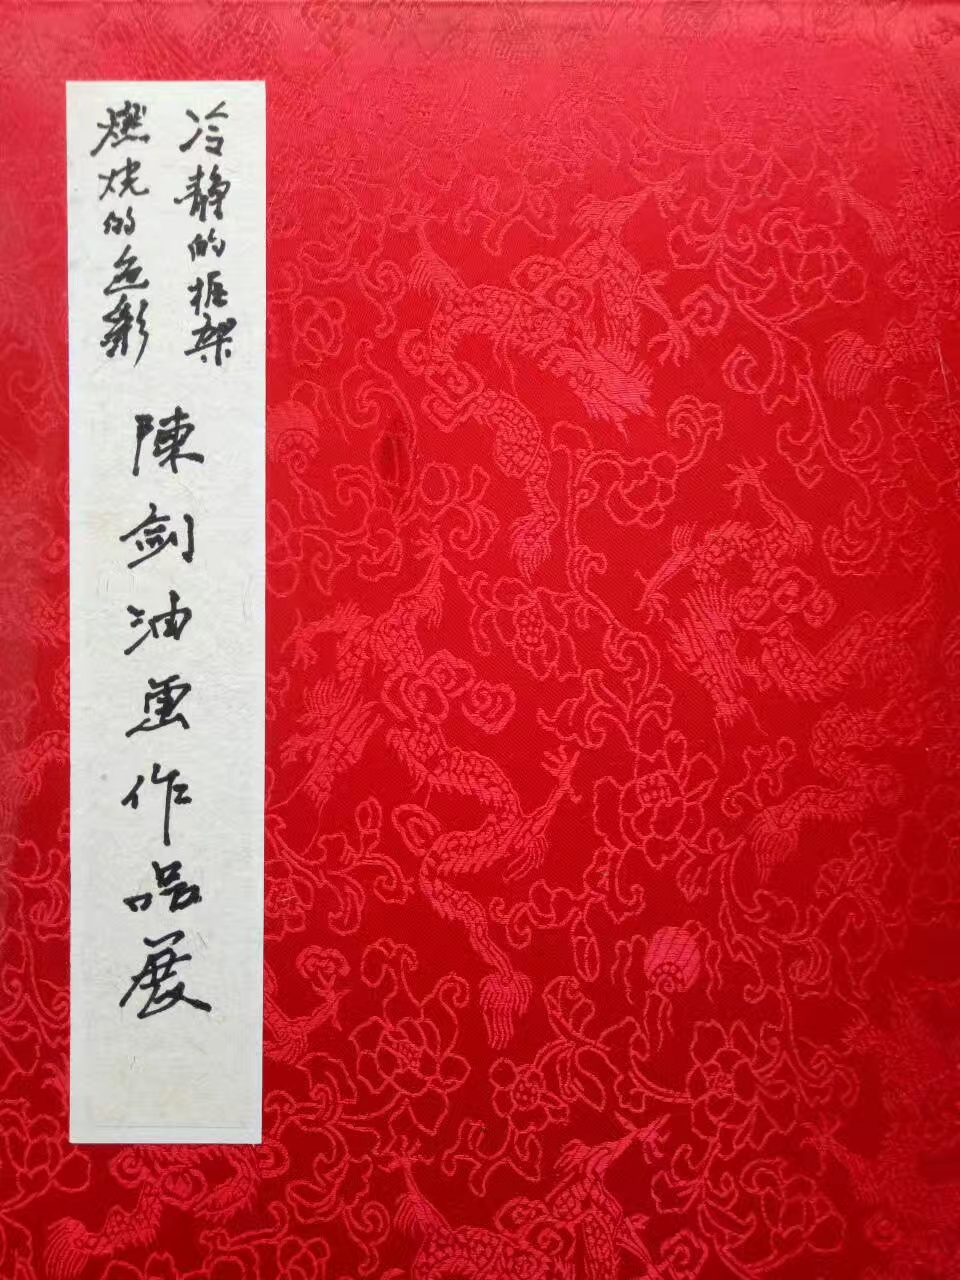 冷静的框架
燃烧的色彩
陳剑油画作品展